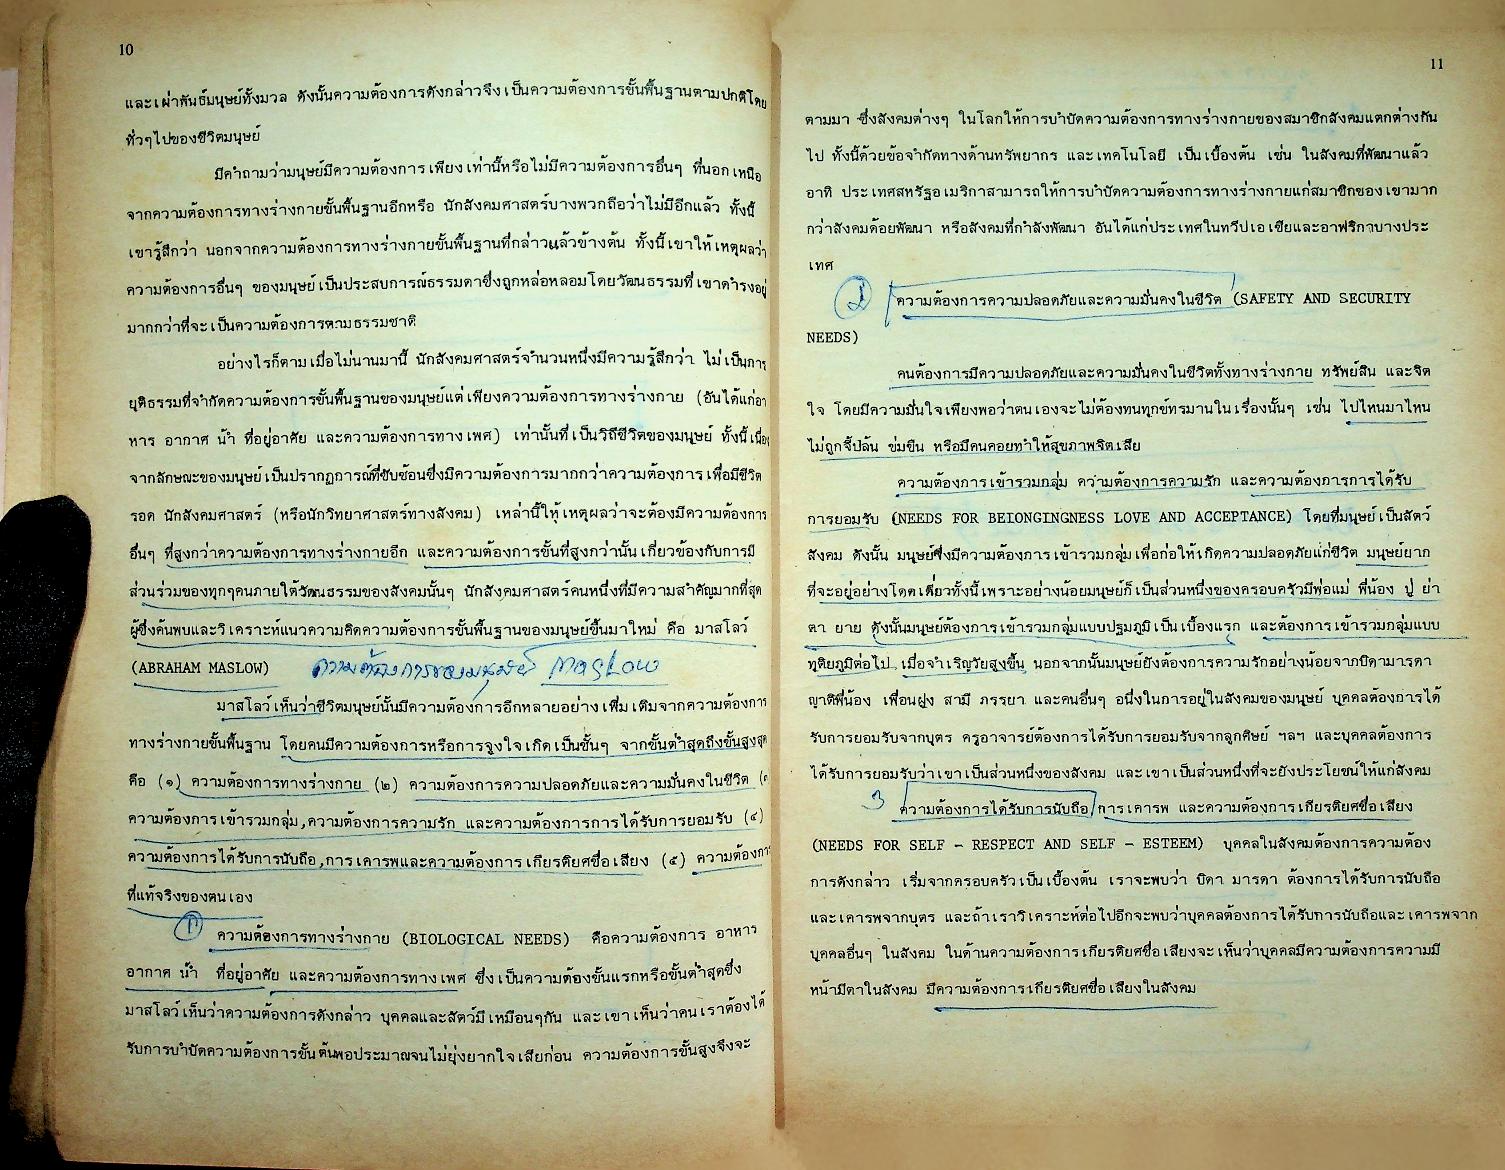 10
และเผ่าพันธ์มนุษย์ทั้งมวล ดังนั้นความต้องการดังกล่าวจึงเป็นความต้องการขั้นพื้นฐานตามปกติโดย
ทั่วๆไปของชีวิตมนุษย์
มีคำถามว่ามนุษย์มีความต้องการเพียงเท่านี้หรือไม่มีความต้องการอื่นๆ ที่นอกเหนือ
จากความต้องการทางร่างกายขั้นพื้นฐานอีกหรือ นักสังคมศาสตร์บางพวกถือว่าไม่มีอีกแล้ว ทั้งนี้
เขารู้สึกว่า นอกจากความต้องการทางร่างกายขั้นพื้นฐานที่กล่าวแล้วข้างต้น ทั้งนี้เขาให้เหตุผลว่า
ความต้องการอื่นๆ ของมนุษย์เป็นประสบการณ์ธรรมดาซึ่งถูกหล่อหลอมโดยวัฒนธรรมที่เขาดำรงอยู่
มากกว่าที่จะเป็นความต้องการตามธรรมชาติ
อย่างไรก็ตามเมื่อไม่นานมานี้ นักสังคมศาสตร์จำนวนหนึ่งมีความรู้สึกว่า ไม่เป็นการ
ยุติธรรมที่จำกัดความต้องการขั้นพื้นฐานของมนุษย์แต่เพียงความต้องการทางร่างกาย (อันได้แก่อา
หาร อากาศ น้ำ ที่อยู่อาศัย และความต้องการทางเพศ) เท่านั้นที่เป็นวิถีชีวิตของมนุษย์ ทั้งนี้เนื่อง
จากลักษณะของมนุษย์เป็นปรากฏการณ์ที่ซับซ้อนซึ่งมีความต้องการมากกว่าความต้องการเพื่อมีชีวิต
รอด นักสังคมศาสตร์ (หรือนักวิทยาศาสตร์ทางสังคม) เหล่านี้ให้เหตุผลว่าจะต้องมีความต้องการ
อื่นๆ ที่สูงกว่าความต้องการทางร่างกายอีก และความต้องการขั้นที่สูงกว่านั้นเกี่ยวข้องกับการมี
ส่วนร่วมของทุกๆคนภายใต้วัฒนธรรมของสังคมนั้นๆ นักสังคมศาสตร์คนหนึ่งที่มีความสำคัญมากที่สุด
ผู้ซึ่งค้นพบและวิเคราะห์แนวความคิดความต้องการขั้นพื้นฐานของมนุษย์ขึ้นมาใหม่ คือ มาสโลว์
(ABRAHAM MASLOW) ความต้องการของมนุษย์ Maslow
มาสโลว์เห็นว่าชีวิตมนุษย์นั้นมีความต้องการอีกหลายอย่างเพิ่มเติมจากความต้องการ
ทางร่างกายขั้นพื้นฐาน โดยคนมีความต้องการหรือการจูงใจเกิดเป็นขั้นๆ จากขั้นต่ำสุดถึงขั้นสูงสุด
คือ (๑) ความต้องการทางร่างกาย (๒) ความต้องการความปลอดภัยและความมั่นคงในชีวิต (๓
ความต้องการเข้ารวมกลุ่ม,ความต้องการความรัก และความต้องการการได้รับการยอมรับ (๔)
ความต้องการได้รับการนับถือ,การเคารพและความต้องการเกียรติยศชื่อเสียง (๕) ความต้องการ
ที่แท้จริงของตนเอง
๑ ความต้องการทางร่างกาย (BIOLOGICAL NEEDS) คือความต้องการ อาหาร
อากาศ น้ำ ที่อยู่อาศัย และความต้องการทางเพศ ซึ่งเป็นความต้องขั้นแรกหรือขั้นต่ำสุดซึ่ง
มาสโลว์เห็นว่าความต้องการดังกล่าว บุคคลและสัตว์มีเหมือนๆกัน และเขาเห็นว่าคนเราต้องได้
รับการบำบัดความต้องการขั้นต้นพอประมาณจนไม่ยุ่งยากใจเสียก่อน ความต้องการขั้นสูงจึงจะ
11
ตามมา ซึ่งสังคมต่างๆ ในโลกให้การบำบัดความต้องการทางร่างกายของสมาชิกสังคมแตกต่างกัน
ไป ทั้งนี้ด้วยข้อจำกัดทางด้านทรัพยากร และเทคโนโลยี เป็นเบื้องต้น เช่น ในสังคมที่พัฒนาแล้ว
อาทิ ประเทศสหรัฐอเมริกาสามารถให้การบำบัดความต้องการทางร่างกายแก่สมาชิกของเขามาก
กว่าสังคมด้อยพัฒนา หรือสังคมที่กำลังพัฒนา อันได้แก่ประเทศในทวีปเอเซียและอาฟริกาบางประ
เทศ
2 ความต้องการความปลอดภัยและความมั่นคงในชีวิต (SAFETY AND SECURITY
NEEDS)
คนต้องการมีความปลอดภัยและความมั่นคงในชีวิตทั้งทางร่างกาย ทรัพย์สิน และจิต
ใจ โดยมีความมั่นใจเพียงพอว่าตนเองจะไม่ต้องทนทุกข์ทรมานในเรื่องนั้นๆ เช่น ไปไหนมาไหน
ไม่ถูกจี้ปล้น ข่มขืน หรือมีคนคอยทำให้สุขภาพจิตเสีย
ความต้องการเข้ารวมกลุ่ม ความต้องการความรัก และความต้องการการได้รับ
การยอมรับ (NEEDS FOR BEIONGINGNESS LOVE AND ACCEPTANCE) โดยที่มนุษย์เป็นสัตว์
สังคม ดังนั้น มนุษย์ซึ่งมีความต้องการเข้ารวมกลุ่มเพื่อก่อให้เกิดความปลอดภัยแก่ชีวิต มนุษย์ยาก
ที่จะอยู่อย่างโดดเดี่ยวทั้งนี้เพราะอย่างน้อยมนุษย์ก็เป็นส่วนหนึ่งของครอบครัวมีพ่อแม่ พี่น้อง ปู่ ย่า
ตา ยาย ดังนั้นมนุษย์ต้องการเข้ารวมกลุ่มแบบปฐมภูมิเป็นเบื้องแรก และต้องการเข้ารวมกลุ่มแบบ
ทุติยภูมิต่อไป เมื่อจำเริญวัยสูงขึ้น นอกจากนั้นมนุษย์ยังต้องการความรักอย่างน้อยจากบิดามารดา
ญาติพี่น้อง เพื่อนฝูง สามี ภรรยา และคนอื่นๆ อนึ่งในการอยู่ในสังคมของมนุษย์ บุคคลต้องการได้
รับการยอมรับจากบุตร ครูอาจารย์ต้องการได้รับการยอมรับจากลูกศิษย์ ฯลฯ และบุคคลต้องการ
ได้รับการยอมรับว่าเขาเป็นส่วนหนึ่งของสังคม และเขาเป็นส่วนหนึ่งที่จะยังประโยชน์ให้แก่สังคม
3 ความต้องการได้รับการนับถือ การเคารพ และความต้องการเกียรติยศชื่อเสียง
(NEEDS FOR SELF - RESPECT AND SELF - ESTEEM) บุคคลในสังคมต้องการความต้อง
การดังกล่าว เริ่มจากครอบครัวเป็นเบื้องต้น เราจะพบว่า บิดา มารดา ต้องการได้รับการนับถือ
และเคารพจากบุตร และถ้าเราวิเคราะห์ต่อไปอีกจะพบว่าบุคคลต้องการได้รับการนับถือและเคารพจาก
บุคคลอื่นๆ ในสังคม ในด้านความต้องการเกียรติยศชื่อเสียงจะเห็นว่าบุคคลมีความต้องการความมี
หน้ามีตาในสังคม มีความต้องการเกียรติยศชื่อเสียงในสังคม